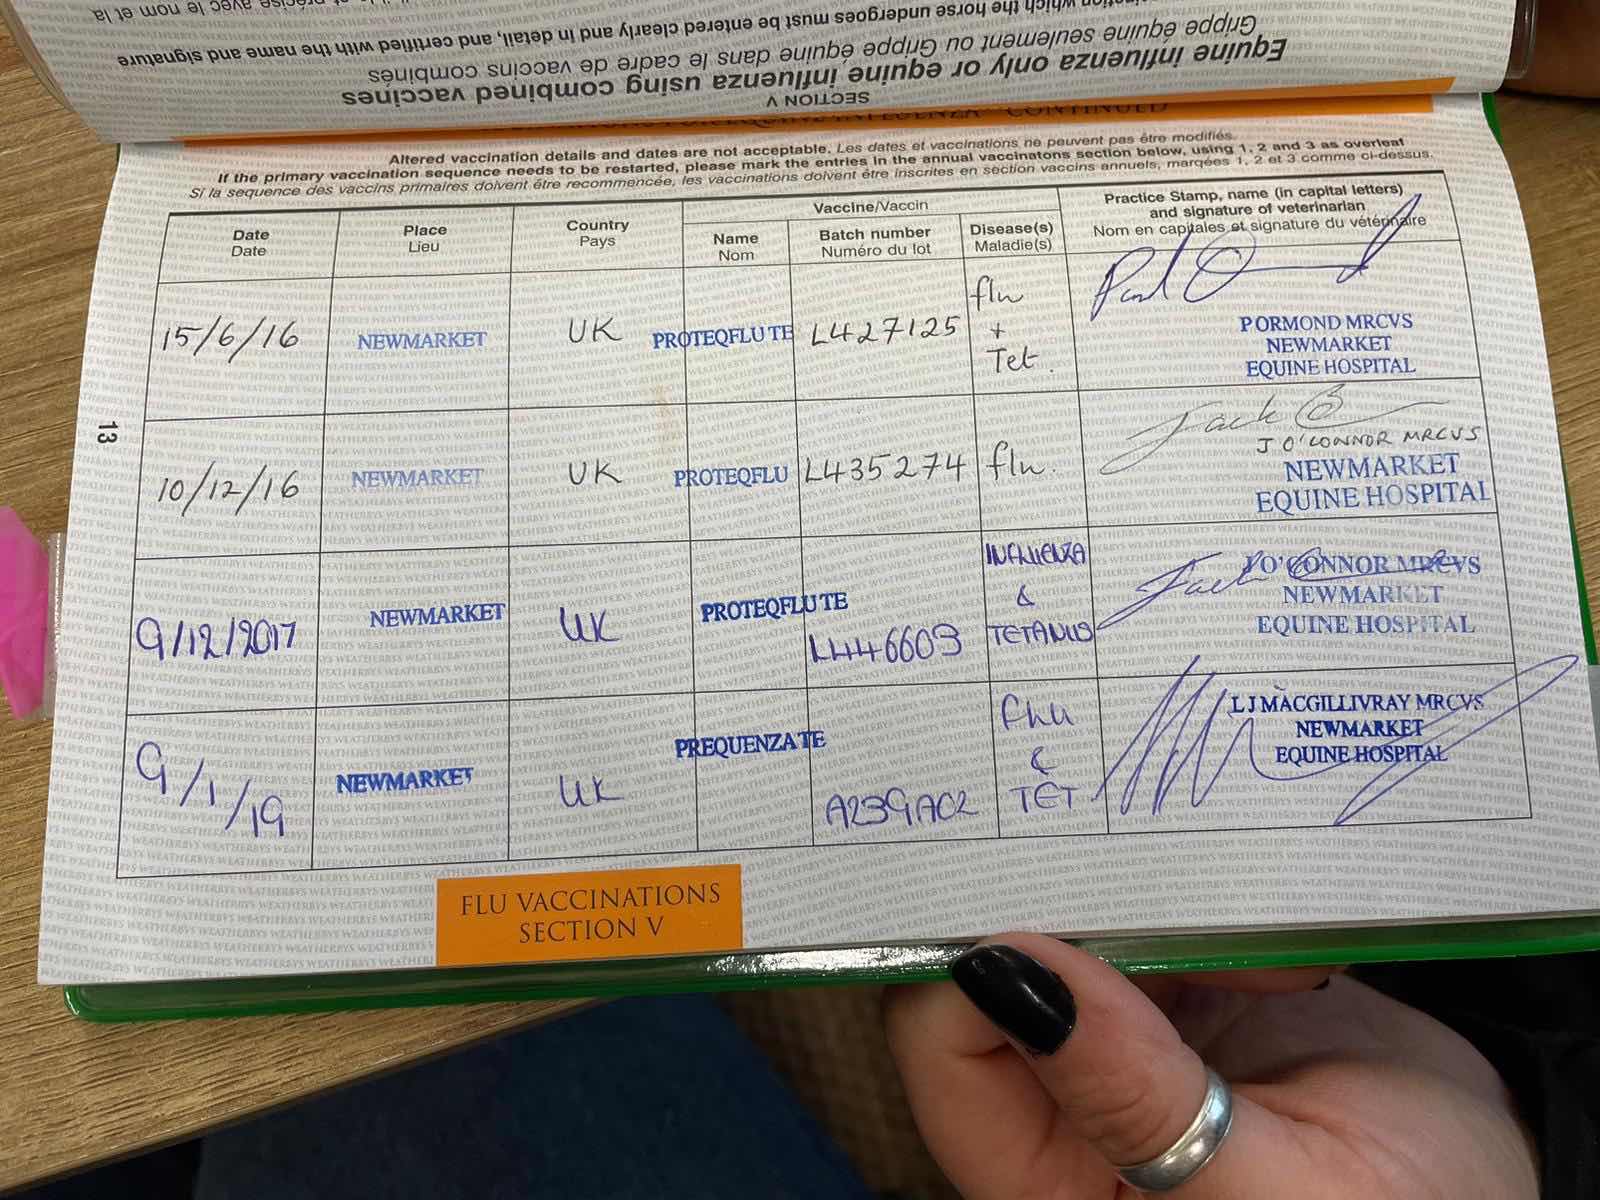 SECTION V
Equine influenza only or equine influenza using combined vaccines
Grippe équine seulement ou Grippe équine dans le cadre de vaccins combinés
which the horse undergoes must be entered clearly and in detail, and certified with the name and signature
précise avec le nom et la
CONTINUED
Altered vaccination details and dates are not acceptable. Les dates et vaccinations ne peuvent pas être modifiés.
If the primary vaccination sequence needs to be restarted, please mark the entries in the annual vaccinatons section below, using 1, 2 and 3 as overleaf
Si la sequence des vaccins primaires doivent être recommencée, les vaccinations doivent être inscrites en section vaccins annuels, marqées 1, 2 et 3 comme ci-dessus.
Date
Date
Place
Lieu
Country
Pays
Vaccine/Vaccin
Name
Nom
Batch number
Numéro du lot
Disease(s)
Maladie(s)
Practice Stamp, name (in capital letters)
and signature of veterinarian
Nom en capitales et signature du vétérinaire
15/6/16
NEWMARKET
UK
PROTEQFLU TE
L427125
flu
+
Tet.
P ORMOND MRCVS
NEWMARKET
EQUINE HOSPITAL
10/12/16
NEWMARKET
UK
PROTEQFLU
L435274
flu.
Jack
J O'CONNOR MRCVS
NEWMARKET
EQUINE HOSPITAL
9/12/2017
NEWMARKET
UK
PROTEQFLU TE
L446603
INFLUENZA
&
TETANUS
Jack
J O'CONNOR MRCVS
NEWMARKET
EQUINE HOSPITAL
9/1/19
NEWMARKET
UK
PREQUENZA TE
A239A02
Flu
&
TET
L J MACGILLIVRAY MRCVS
NEWMARKET
EQUINE HOSPITAL
13
FLU VACCINATIONS
SECTION V